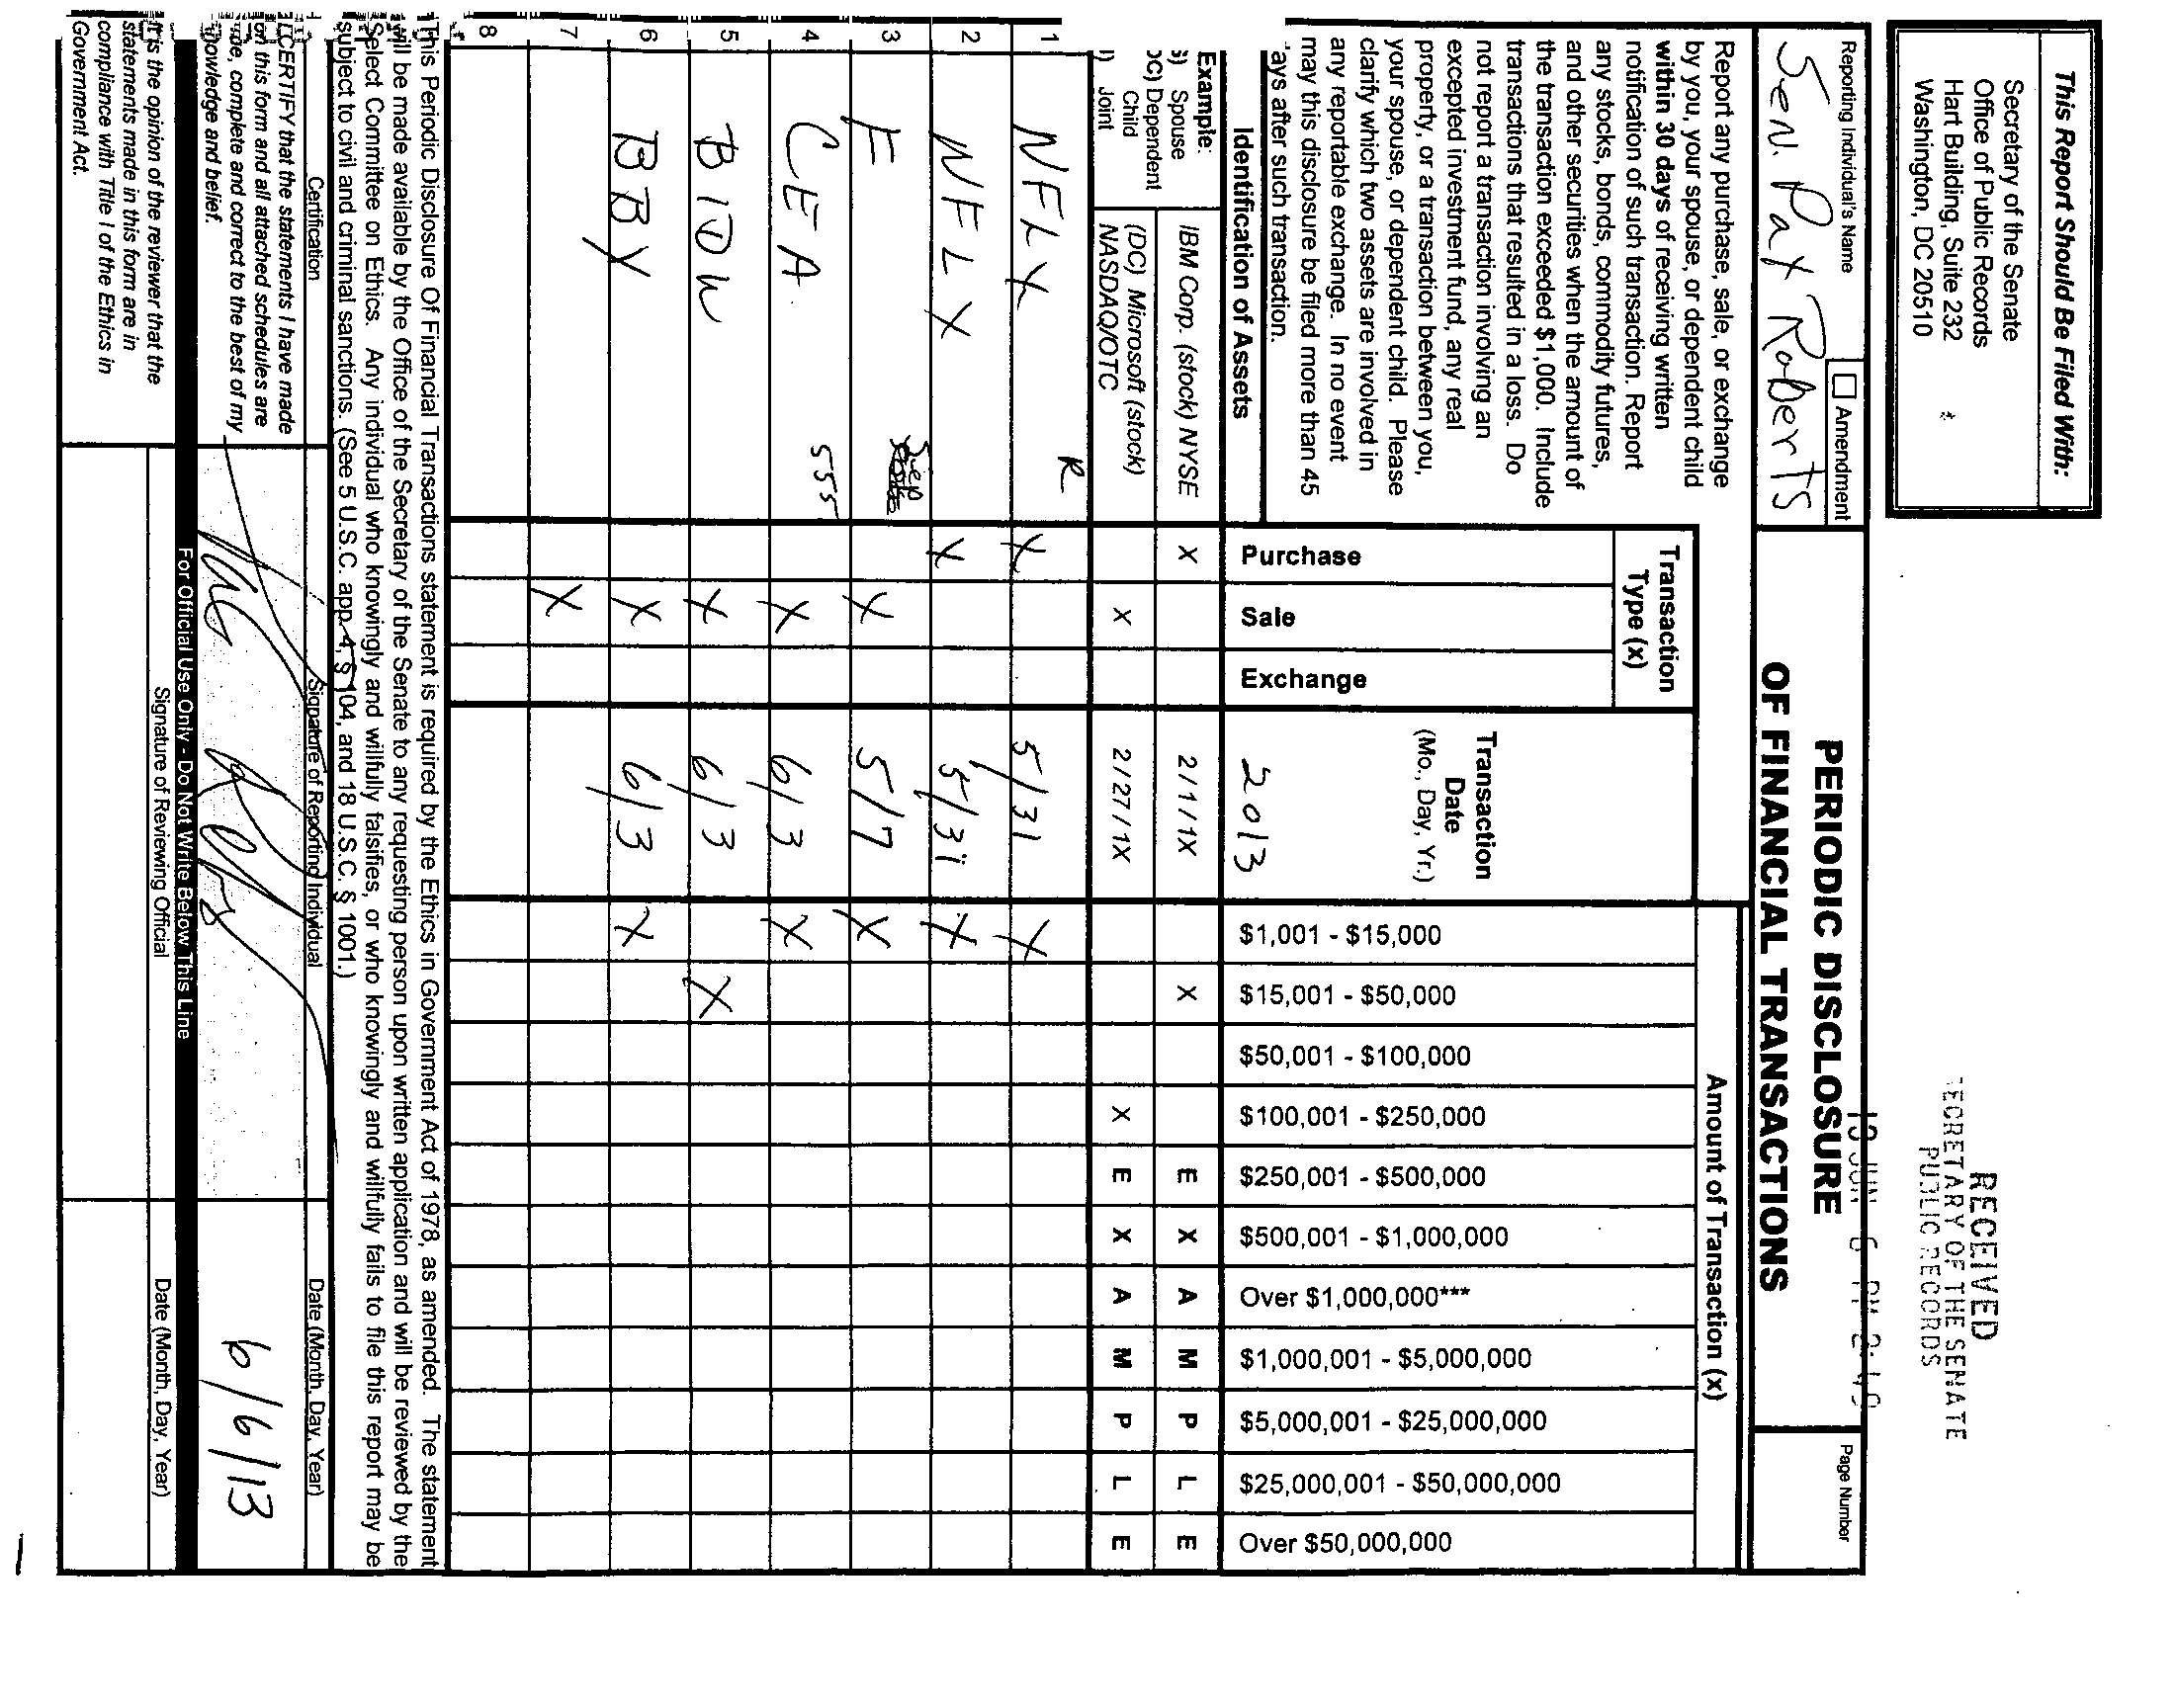 This Report Should Be Filed With:
Secretary of the Senate
Office of Public Records
Hart Building, Suite 232
Washington, DC 20510
RECEIVED
SECRETARY OF THE SENATE
PUBLIC RECORDS
13 JUN 6 PM 2:49
Reporting Individual's Name
Amendment
Sen. Pat Roberts
PERIODIC DISCLOSURE
OF FINANCIAL TRANSACTIONS
Page Number
Report any purchase, sale, or exchange
by you, your spouse, or dependent child
within 30 days of receiving written
notification of such transaction. Report
any stocks, bonds, commodity futures,
and other securities when the amount of
the transaction exceeded $1,000. Include
transactions that resulted in a loss. Do
not report a transaction involving an
excepted investment fund, any real
property, or a transaction between you,
your spouse, or dependent child. Please
clarify which two assets are involved in
any reportable exchange. In no event
may this disclosure be filed more than 45
days after such transaction.
Identification of Assets
Transaction
Type (x)
Purchase
Sale
Exchange
Transaction
Date
(Mo., Day, Yr.)
2013
Amount of Transaction (x)
$1,001 - $15,000
$15,001 - $50,000
$50,001 - $100,000
$100,001 - $250,000
$250,001 - $500,000
$500,001 - $1,000,000
Over $1,000,000***
$1,000,001 - $5,000,000
$5,000,001 - $25,000,000
$25,000,001 - $50,000,000
Over $50,000,000
Example:
S) Spouse
DC) Dependent
Child
J) Joint
IBM Corp. (stock) NYSE X 2/1/1X X E X A M P L E
(DC) Microsoft (stock)
NASDAQ/OTC X 2/27/1X X E X A M P L E
1 NFLX R X 5/31 X
2 NFLX X 5/31 X
3 F X 5/7 X
4 CEA 555 X 6/3 X
5 BIDU X 6/3 X
6 BBY X 6/3 X
7 X
8
This Periodic Disclosure Of Financial Transactions statement is required by the Ethics in Government Act of 1978, as amended. The statement
will be made available by the Office of the Secretary of the Senate to any requesting person upon written application and will be reviewed by the
Select Committee on Ethics. Any individual who knowingly and willfully falsifies, or who knowingly and wilfully fails to file this report may be
subject to civil and criminal sanctions. (See 5 U.S.C. app. 4, § 104, and 18 U.S.C. § 1001.)
Certification
Signature of Reporting Individual
Date (Month, Day, Year)
I CERTIFY that the statements I have made
on this form and all attached schedules are
true, complete and correct to the best of my
knowledge and belief.
6/6/13
For Official Use Only - Do Not Write Below This Line
It is the opinion of the reviewer that the
statements made in this form are in
compliance with Title I of the Ethics in
Government Act.
Signature of Reviewing Official
Date (Month, Day, Year)